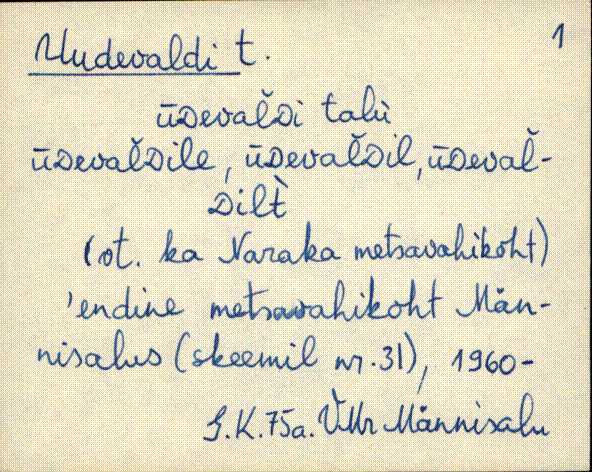 Uudevaldi t. 1
ūᴅevaľᴅi talù
ūᴅevaľᴅile, ūᴅevaľᴅil, ūᴅevaľ-
ᴅilt̀
(vt. ka Naraka metsavahikoht)
'endine metsavahikoht Män-
nisalus (skeemil nr. 31), 1960-
G.K. 75a. VMr Männisalu